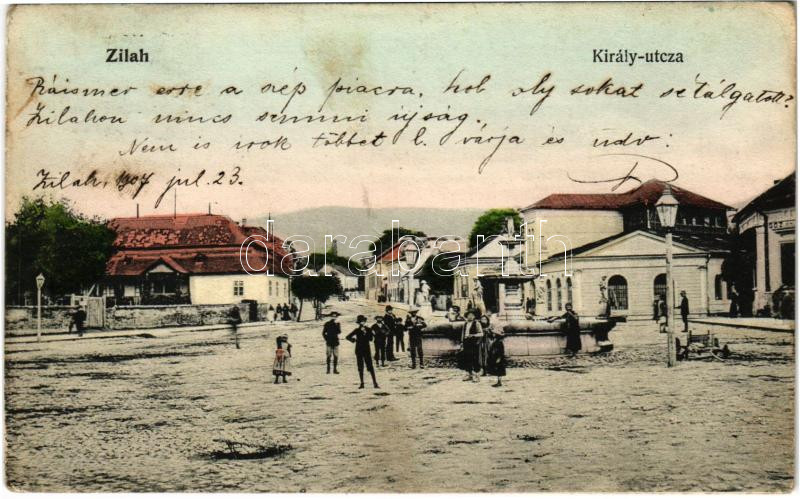 Zilah
Király-utcza
Ráismer erre a szép piacra, hol oly sokat sétálgatott?
Zilahon nincs semmi újság.
Nem is irok többet l. várja és üdv:
Zilah, 907 jul. 23.
darabanth.com